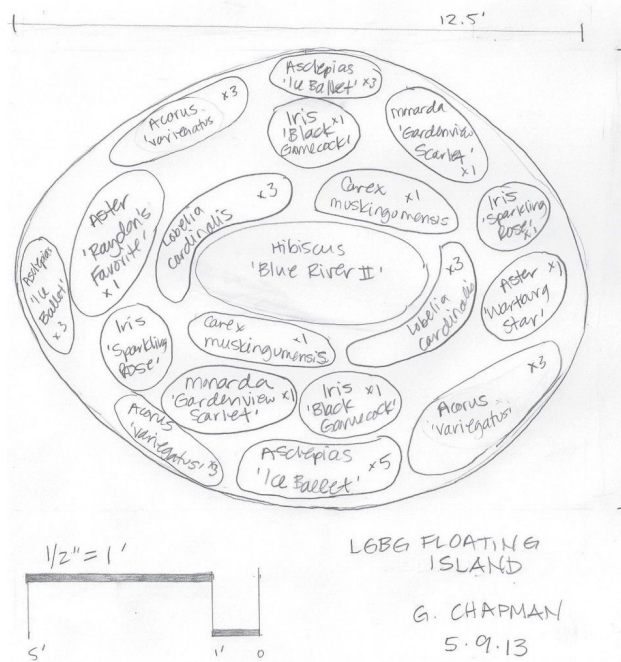 12.5'
Asclepias
'Ice Ballet' x3
Acorus x3
'variegatus'
Iris x1
'Black
Gamecock'
Monarda
'Gardenview
Scarlet'
x1
Aster
'Raydon's
Favorite'
x1
Lobelia x3
cardinalis
Carex x1
muskingumensis
Iris
'Sparkling
Rose' x1
Hibiscus
'Blue River II'
Asclepias
'Ice
Ballet'
x3
Lobelia x3
cardinalis
Aster x1
'Wartburg
Star'
Iris
'Sparkling
Rose'
Carex x1
muskingumensis
Monarda
'Gardenview x1
Scarlet'
Iris x1
'Black
Gamecock'
Acorus x3
'variegatus'
Acorus
'variegatus' x3
Asclepias x5
'Ice Ballet'
1/2" = 1'
5' 1' 0
LGBG FLOATING
ISLAND
G. CHAPMAN
5.9.13